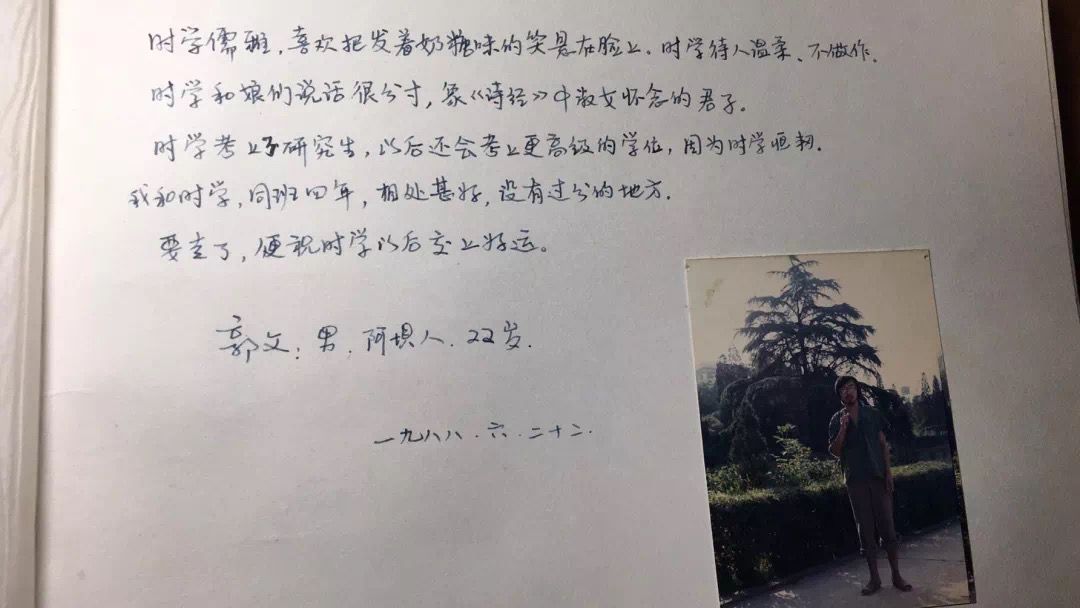 时学儒雅,喜欢把发着奶糖味的笑悬在脸上。时学待人温柔、不做作。
时学和娘们说话很分寸,象《诗经》中淑女怀念的君子。
时学考上了研究生,以后还会考上更高级的学位,因为时学恒韧.
我和时学,同班四年,相处甚好,没有过分的地方.
要走了,便祝时学以后交上好运。
郭文:男.阿坝人.22岁.
一九八八.六.二十二.